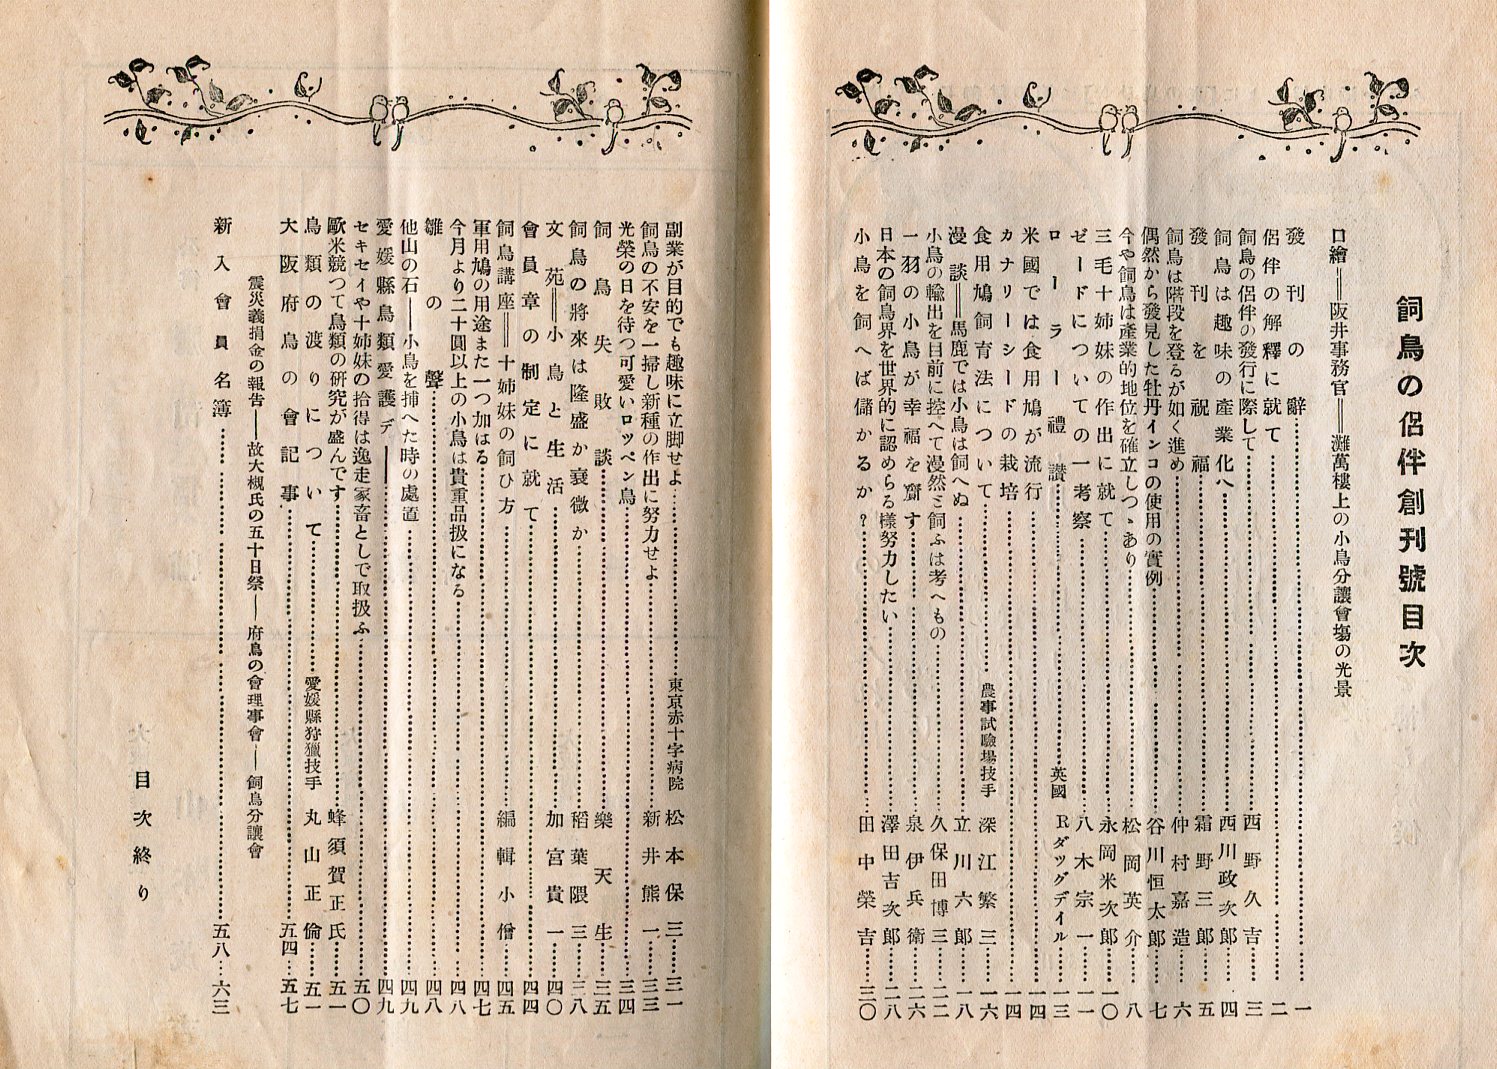 飼鳥の侶伴創刊號目次
口繪＝阪井事務官＝灘萬樓上の小鳥分讓會塲の光景
發刊の辭……一
侶伴の解釋に就て……二
飼鳥の侶伴の發行に際して……西野久吉……三
飼鳥は趣味の產業化へ……西川政次郎……四
發刊を祝福……霜野三郎……五
飼鳥は階段を登るが如く進め……仲村嘉造……六
偶然から發見した牡丹インコの使用の實例……谷川恒太郎……七
今や飼鳥は產業的地位を確立しつゝあり……松岡英介……八
三毛十姉妹の作出に就て……永岡米次郎……一〇
ゼードについての一考察……八木宗一……一一
ローラー禮讃……英國 Rダッグデイル……一三
米國では食用鳩が流行……一四
カナリーシードの栽培……一四
食用鳩飼育法について……農事試驗場技手 深江繁三……一六
漫談＝馬鹿では小鳥は飼へぬ……立川六郎……一八
小鳥の輸出を目前に控へて漫然と飼ふは考へもの……久保田博三……二二
一羽の小鳥が幸福を齎す……泉伊兵衛……二六
日本の飼鳥界を世界的に認めらる樣努力したい……澤田吉次郎……二八
小鳥を飼へば儲かるか？……田中榮吉……三〇
副業が目的でも趣味に立脚せよ……東京赤十字病院 松本保三……三一
飼鳥の不安を一掃し新種の作出に努力せよ……新井熊一……三三
光榮の日を待つ可愛いロッペン鳥……三四
飼鳥失敗談……樂天生……三五
飼鳥の將來は隆盛か衰微か……稻葉隈三……三八
文苑＝小鳥と生活……加宮貴一……四〇
會員章の制定に就て……四四
飼鳥講座＝十姉妹の飼ひ方……編輯小僧……四五
軍用鳩の用途また一つ加はる……四七
今月より二十圓以上の小鳥は貴重品扱になる……四八
雛の聲……四八
他山の石――小鳥を捕へた時の處置……四九
愛媛縣鳥類愛護デー……四九
セキセイや十姉妹の拾得は逸走家畜として取扱ふ……五〇
歐米競つて鳥類の研究が盛んです……蜂須賀正氏……五一
鳥類の渡りについて……愛媛縣狩獵技手 丸山正倫……五一
大阪府鳥の會記事……五四…五七
震災義捐金の報告――故大槻氏の五十日祭――府鳥の會理事會――飼鳥分讓會
新入會員名簿……五八…六三
目次終り